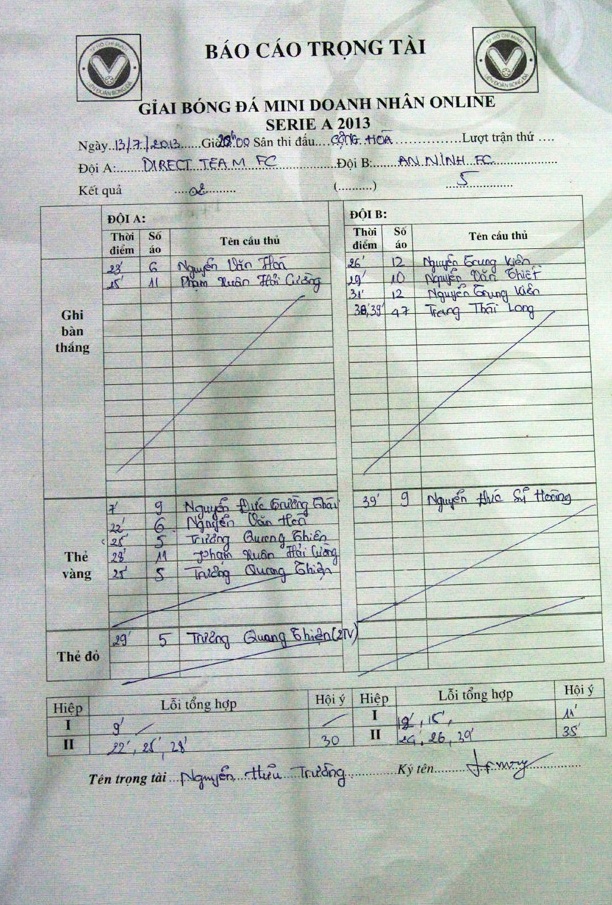 BÁO CÁO TRỌNG TÀI
GIẢI BÓNG ĐÁ MINI DOANH NHÂN ONLINE
SERIE A 2013
Ngày 13/7/2013 Giờ Sân thi đấu CỘNG HOÀ Lượt trận thứ
Đội A: DIRECT TEAM FC Đội B: AN NINH FC
Kết quả 02 (..........) 5
ĐỘI A: ĐỘI B:
Thời điểm Số áo Tên cầu thủ Thời điểm Số áo Tên cầu thủ
Ghi bàn thắng
23' 6 Nguyễn Văn Hoà 26' 12 Nguyễn Trung Kiên
25' 11 Phạm Xuân Hải Cương 29' 10 Nguyễn Văn Thiết
31' 12 Nguyễn Trung Kiên
38,39' 47 Trang Thái Long
Thẻ vàng
7' 9 Nguyễn Đức Trường Thái 39' 9 Nguyễn Đức Sĩ Hoàng
22' 6 Nguyễn Văn Hoà
25' 5 Trương Quang Thiện
28' 11 Phạm Xuân Hải Cương
5 Trương Quang Thiện
Thẻ đỏ
29' 5 Trương Quang Thiện (2TV)
Hiệp Lỗi tổng hợp Hội ý Hiệp Lỗi tổng hợp Hội ý
I 9' I 15', 11'
II 22', 28' 30 II 26, 35'
Tên trọng tài Nguyễn Hữu Trường Ký tên